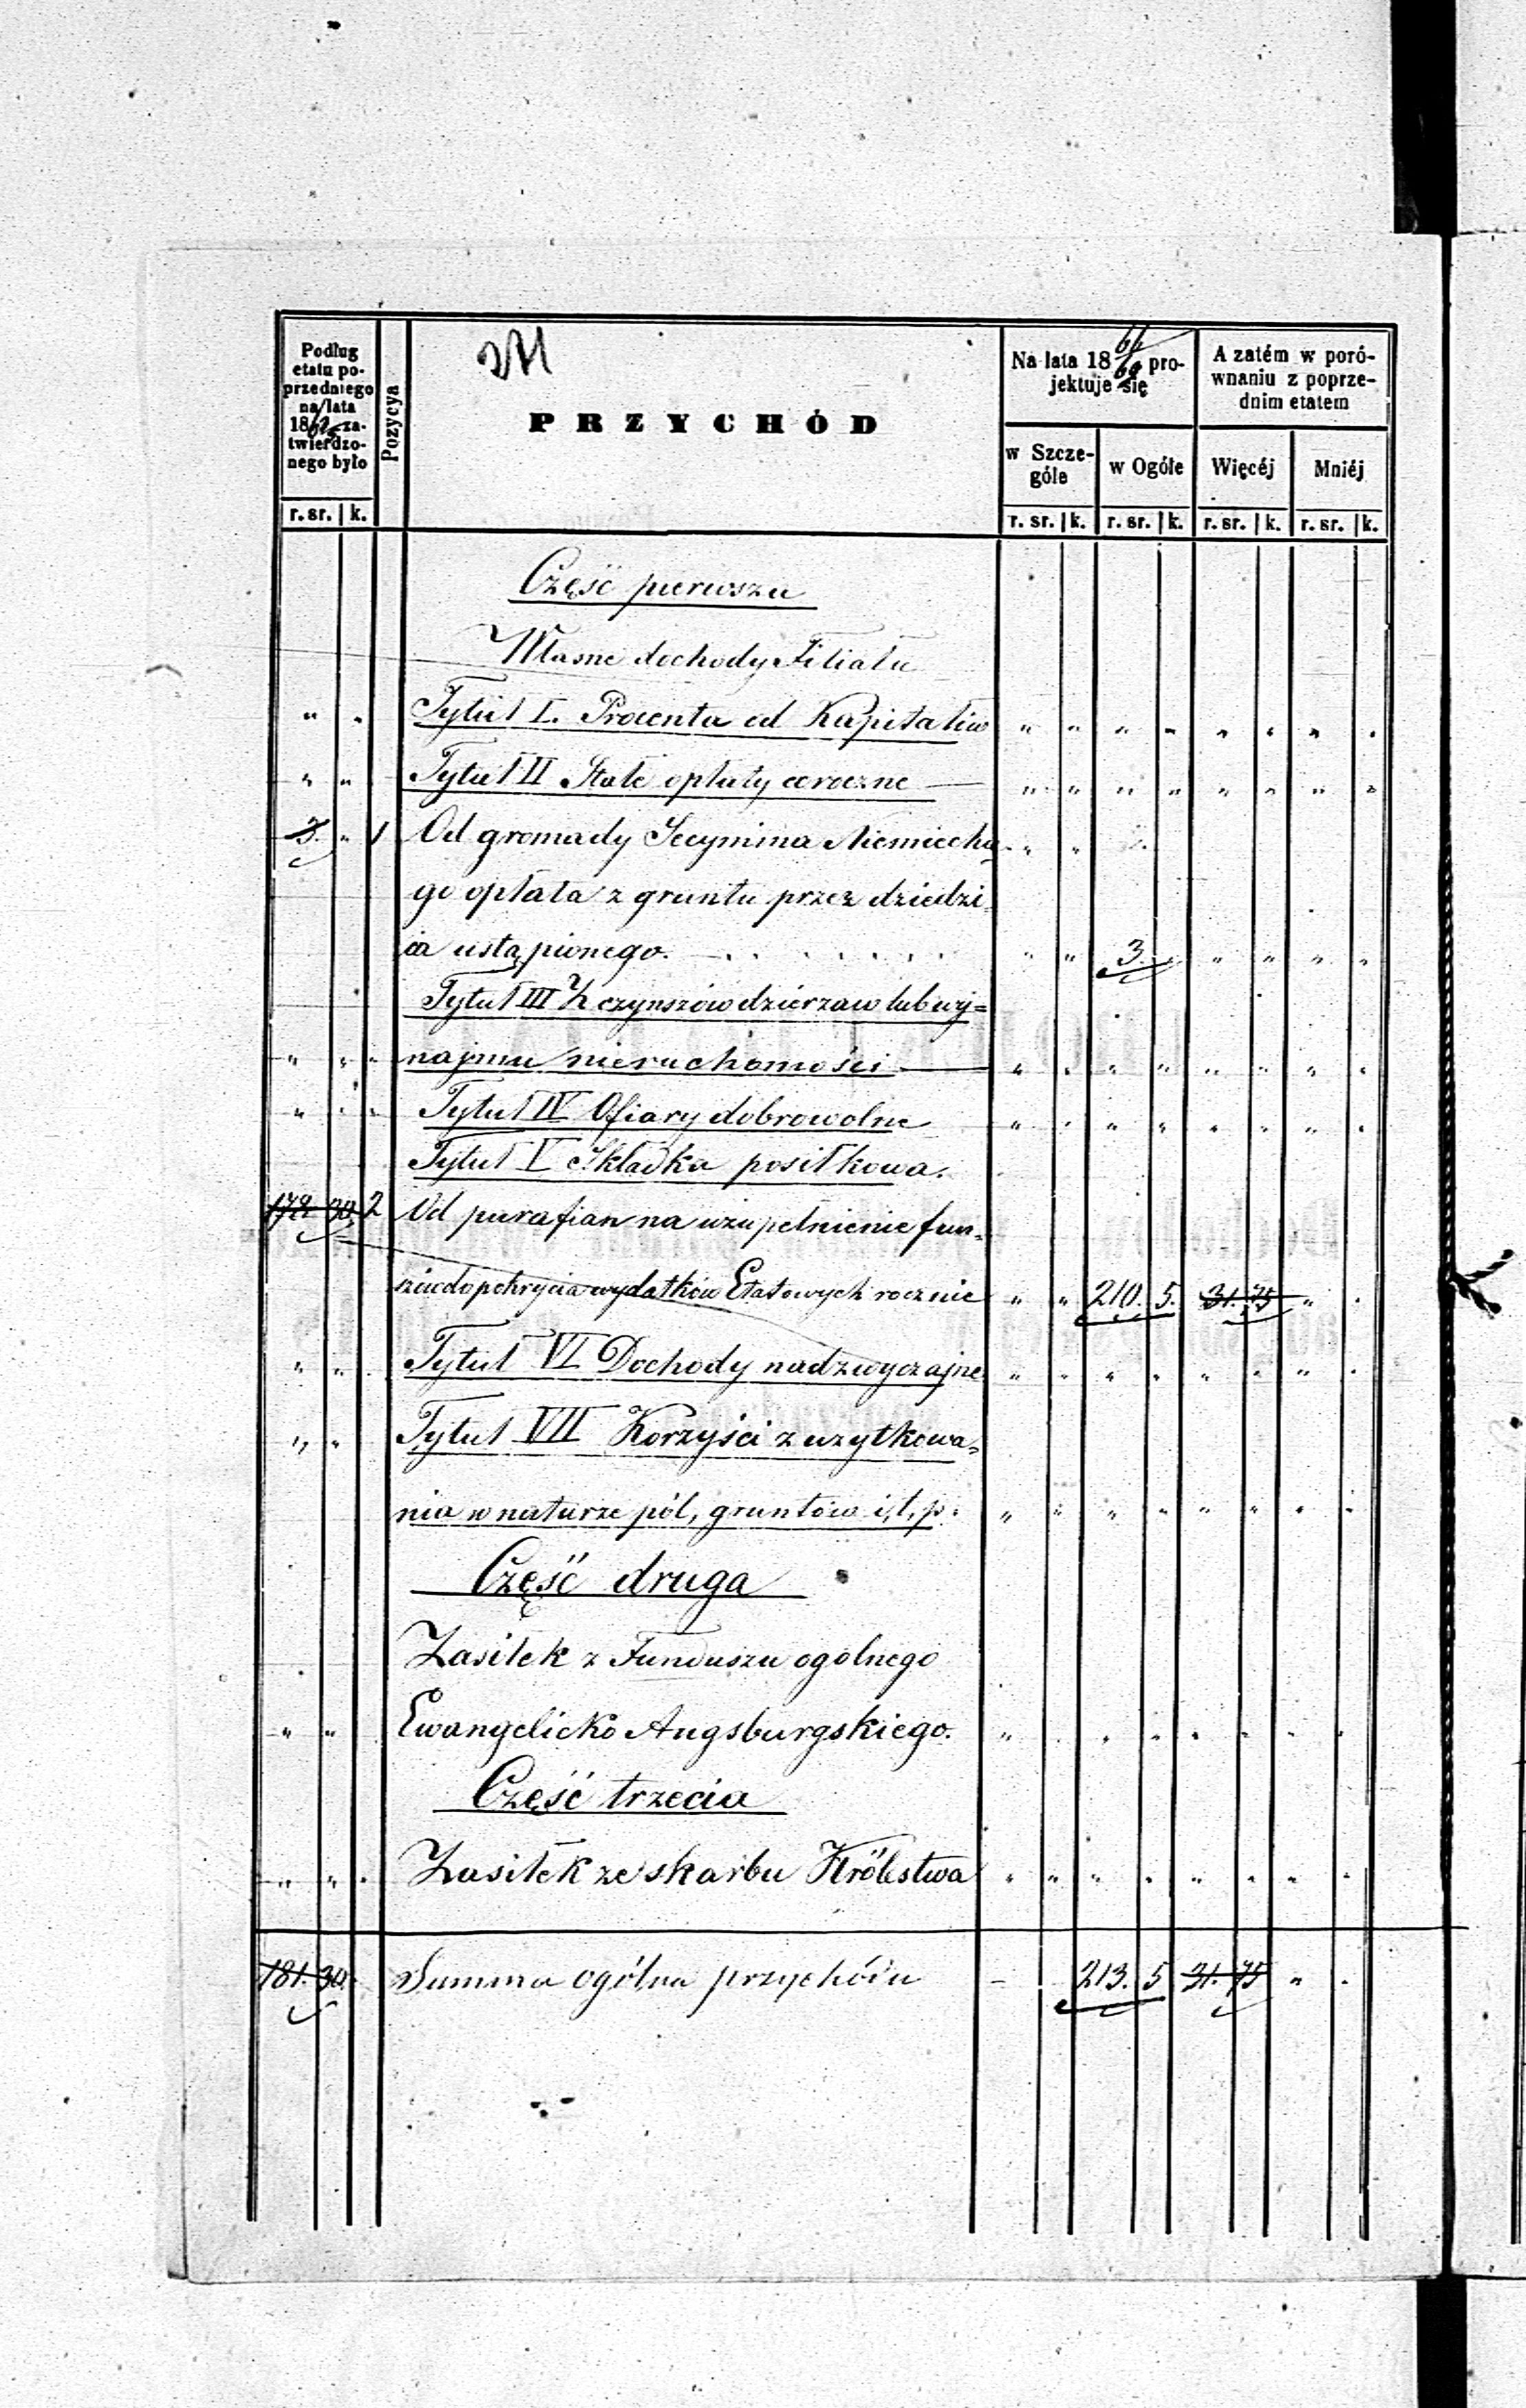 Podług
etatu po-
przedniego
na lata
18 za-
twierdzo-
nego było
Pozycya
PRZYCHÓD
Na lata 18 66/69 pro-
jektuje się
A zatém w poró-
wnaniu z poprze-
dnim etatem
w Szcze-
góle
w Ogóle
Więcéj
Mniéj
r. sr. k. r. sr. k. r. sr. k. r. sr. k. r. sr. k.
Część pierwsza
Własne dochody Filiału
" " Tytuł I. Procenta od Kapitałów " " " " " " " "
" " Tytuł II Stałe opłaty coroczne — " " " " " " " "
3. " 1 Od gromady Secymina Niemiecke- " "
go opłata z gruntu przez dziedzi-
ca ustąpionego. . . . . . . . " " 3. " " " "
Tytuł III Z czynszów dzierzaw lub wy=
" " " najmu nieruchomości — " " " " " " " "
" " " Tytuł IV Ofiary dobrowolne " " " " " " " "
Tytuł V Składka posiłkowa.
178. 30. 2 Od parafian na uzupełnienie fun-
sziu do pokrycia wydatków Etatowych rocznie " " 210. 5. 31. 75 " "
" " Tytuł VI Dochody nadzwyczajne " " " " " " " "
" " Tytuł VII Korzyści z uzytkowa=
nia w naturze pól, gruntów i, t, p. " " " " " " " "
Część druga
Zasiłek z Funduszu ogolnego
" " Ewangelicko Augsburgskiego. " " " " " " " "
Część trzecia
" " " Zasiłek ze skarbu Królestwa " " " " " " " "
181. 30. Summa ogólna przychódu – 213. 5 31. 75 " "